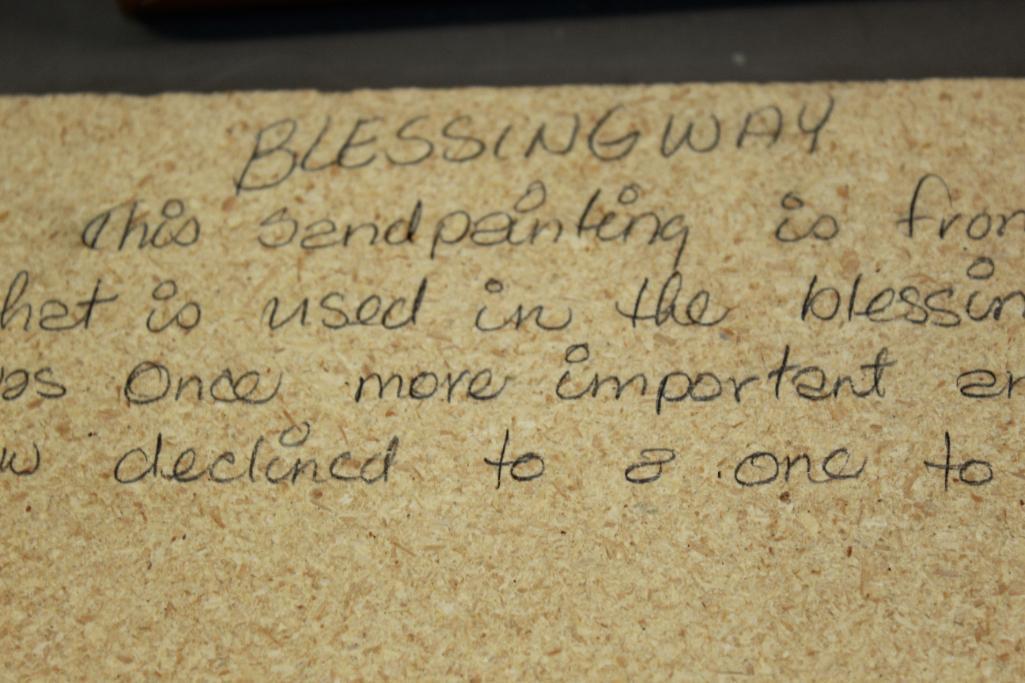 BLESSINGWAY
This sandpainting is from
hat is used in the blessin
as Once more important an
w declined to a one to